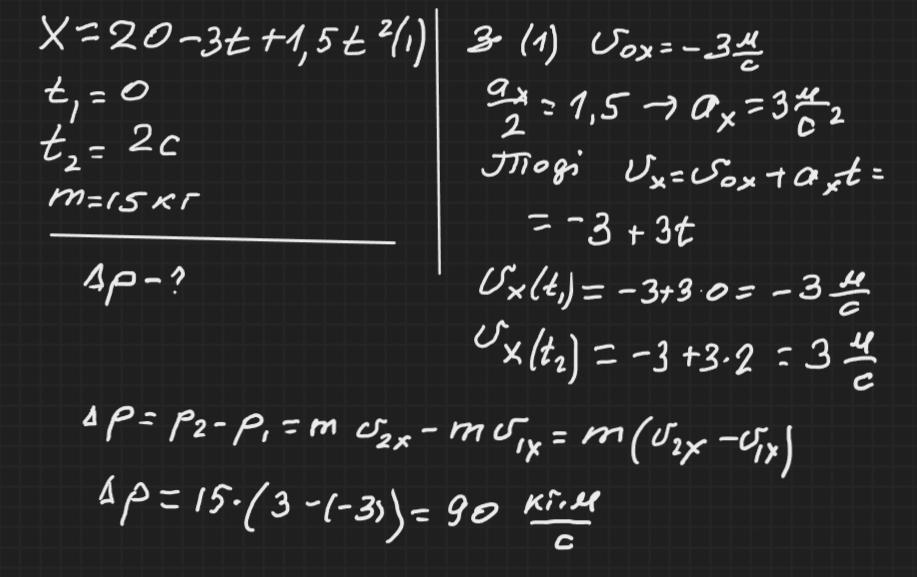 x=20-3t+1,5t²(1)
t₁=0
t₂=2c
m=15 кг
Δp-?
З (1) υ₀ₓ=-3 м/с
aₓ/2=1,5→aₓ=3 м/с²
Тоді υₓ=υ₀ₓ+aₓt=
=-3+3t
υₓ(t₁)=-3+3·0=-3 м/с
υₓ(t₂)=-3+3·2=3 м/с
Δp=p₂-p₁=mυ₂ₓ-mυ₁ₓ=m(υ₂ₓ-υ₁ₓ)
Δp=15·(3-(-3))=90 кг·м/с